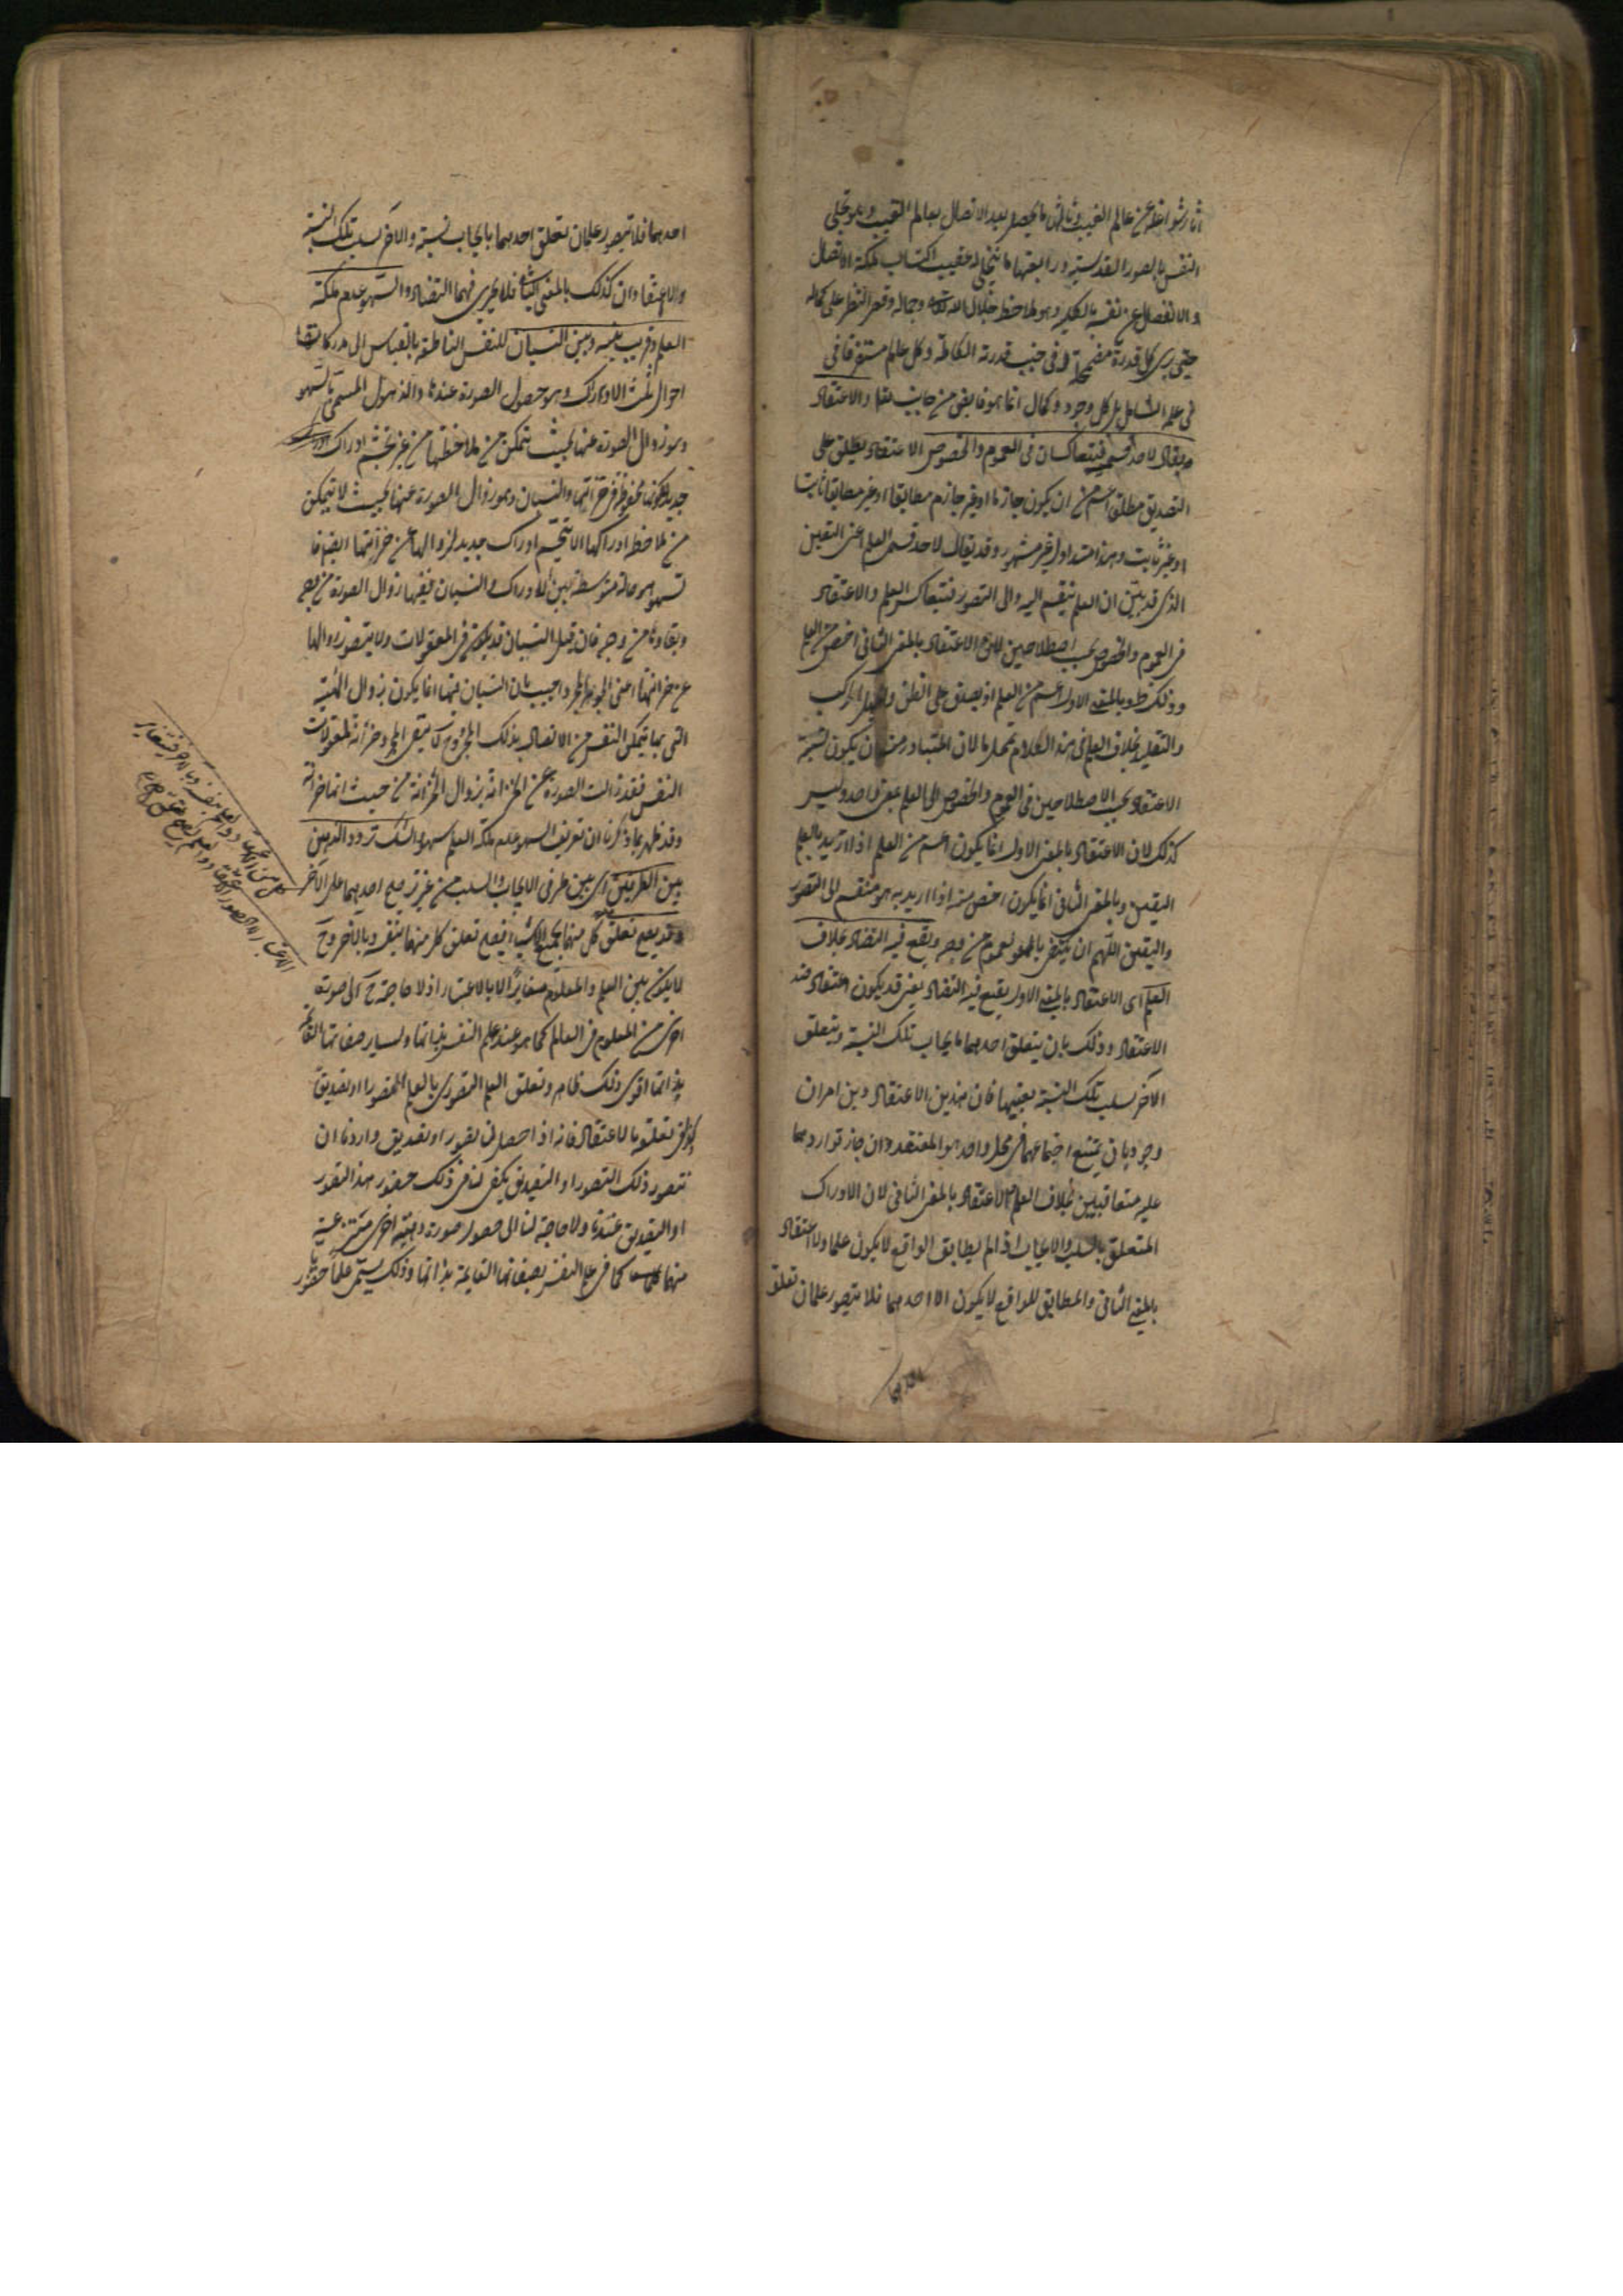 آثار شواغله عن عالم الغيب وثالثها ما يحصل بعد الاتصال بعالم الغيب وهو تجلي
النفس بالصور القدسية ورابعتها ما يتجلى له عقيب اكتساب ملكة الاتصال
والانفصال عن نفسه بالكلية وهو ملاحظة جلال الله وجماله وقصر النظر على كماله
حتى يرى كل قدرة مضمحلة في جنب قدرته الكاملة وكل علم مستغرقا في
في علمه الشامل بل كل وجود وكمال انما هو فايض من جانب والاعتقاد
يقال لاحد قسميه فيتعاكسان في العموم والخصوص الاعتقاد يطلق على
التصديق مطلقا اعم من ان يكون جازما او غير جازم مطابقا او غير مطابق ثابتا
او غير ثابت وهذا متداول مشهور وقد يقال لاحد قسمي العلم اعنى اليقين
الذي قد بين ان العلم ينقسم اليه والى التصور فيتعاكس العلم والاعتقاد
في العموم والخصوص بحسب اصطلاحين لان الاعتقاد بالمعنى الثاني اخص من العلم
وذلك ظ وبالمعنى الاول اعم من العلم اذ يصدق على الظن والجهل المركب
والتقليد بخلاف العلم في هذا الكلام لان المتبادر منه ان يكون نسبة
الاعتقاد بحسب الاصطلاحين في العموم والخصوص الى العلم بمعنى واحد وليس
كذلك لان الاعتقاد بالمعنى الاول انما يكون اعم من العلم اذا اريد بالعلم
اليقين وبالمعنى الثاني انما يكون اخص منه اذا اريد به هو منقسم الى التصور
واليقين اللهم ان يكتفى بالعموم من وجه ويقع فيه التضاد بخلاف
العلم اى الاعتقاد بالمعنى الاول يقع فيه التضاد يعنى قد يكون اعتقاد ضد
الاعتقاد وذلك بان يتعلق احدهما بايجاب تلك النسبة ويتعلق
الآخر بسلب تلك النسبة بعينها فان هذين الاعتقادين امران
وجوديان يمتنع اجتماعهما في محل واحد هو المعتقد وان جاز تواردهما
عليه متعاقبين بخلاف العلم والاعتقاد بالمعنى الثاني لان الادراك
المتعلق بالسلب والايجاب اذا لم يطابق الواقع لا يكون علما ولا اعتقاد
بالمعنى الثاني والمطابق للواقع لا يكون الا احدهما فلا يتصور علمان تعلق
احدهما
احدهما فلا يتصور علمان تعلق احدهما بايجاب نسبة والآخر بسلب تلك النسبة
والاعتقادان كذلك بالمعنى الثاني فلا يجري فيهما التضاد والسهو عدم ملكة
العلم وقريب منه وبين النسيان للنفس الناطقة بالقياس الى مدركاتها
احوال ثلث الادراك وهو حصول الصورة عندها والذهول المسمى بالسهو
وهو زوال الصورة عنها بحيث يتمكن من ملاحظتها من غير تجشم ادراك
جديد لكونها محفوظة في خزانتها والنسيان وهو زوال الصورة عنها بحيث لا يتمكن
من ملاحظة ادراكها الا بتجشم ادراك جديد لزوالها عن خزانتها ايضا فا
لسهو حالة متوسطة بين الادراك والنسيان ففيها زوال الصورة من وجه
وبقاؤها من وجه فان قيل النسيان قد يكون في المعقولات ولا يتصور زوالها
عن خزانتها اعنى الجوهر المجرد واجيب بان النسيان فيها انما يكون بزوال الهيئة
التي بها يتمكن النفس من الاتصال بذلك المجرد فح لا يبقى المجرد خزانة لمعقولات
النفس فقد زالت الصورة عن الخزانة بزوال الخزانة من حيث انها خزانة
وقد ظهر بما ذكرنا ان تعريف السهو بعدم ملكة العلم سهو والشك تردد الذهن
بين الطرفين اى بين طرفي الايجاب والسلب من غير ترجيح احدهما على الآخر
وقد يصح تعلق كل منهما بجميع الاشياء فيصح تعلق كل منهما بنفسه وبالآخر وح
لا يكون بين العلم والمعلوم مغايرة الا بالاعتبار اذ لا حاجة ح الى صورة
اخرى من المعلوم في العالم كما هو عند علم النفس بذاتها ولساير صفاتها القائمة
بذاتها اقوى ذلك ظاهر وتعلق العلم التصوري بالعلم تصورا او تصديقا
وكذا في تعلقه بالاعتقاد فانه اذا حصل لنا تصور او تصديق واردنا ان
نتصور ذلك التصور او التصديق يكفى لنا في ذلك حضور هذا التصور
او التصديق عندنا ولا حاجة لنا الى حصول صورة ذهنية اخرى منتزعة
منهما كما في علم النفس بصفاتها القايمة بذاتها وذلك يسمى علما حضوريا